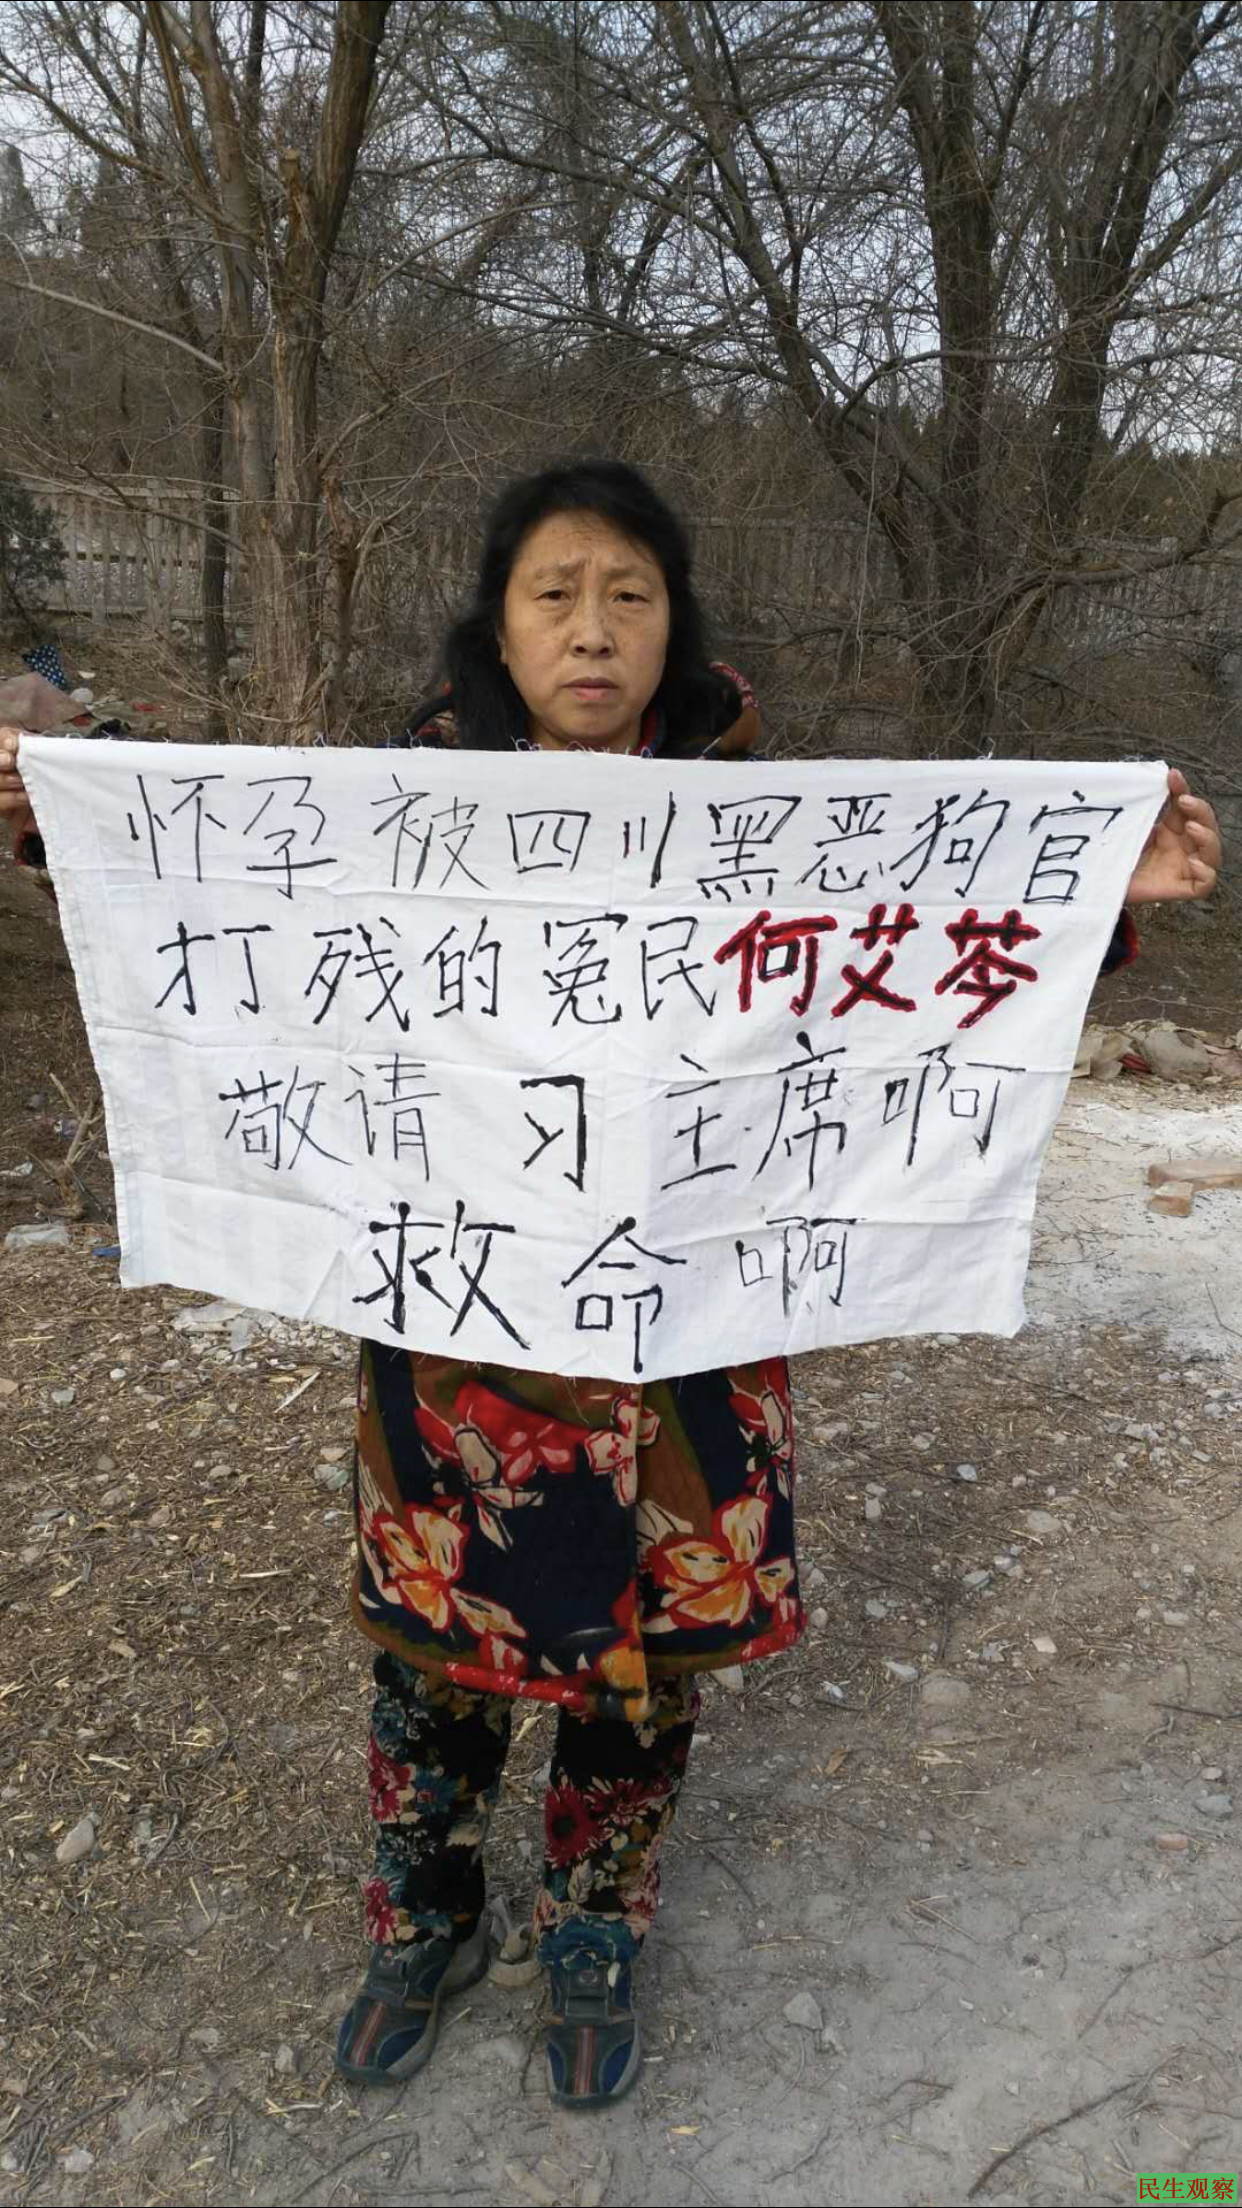 怀孕被四川黑恶狗官
打残的冤民何艾芩
敬请习主席啊
救命啊
民生观察